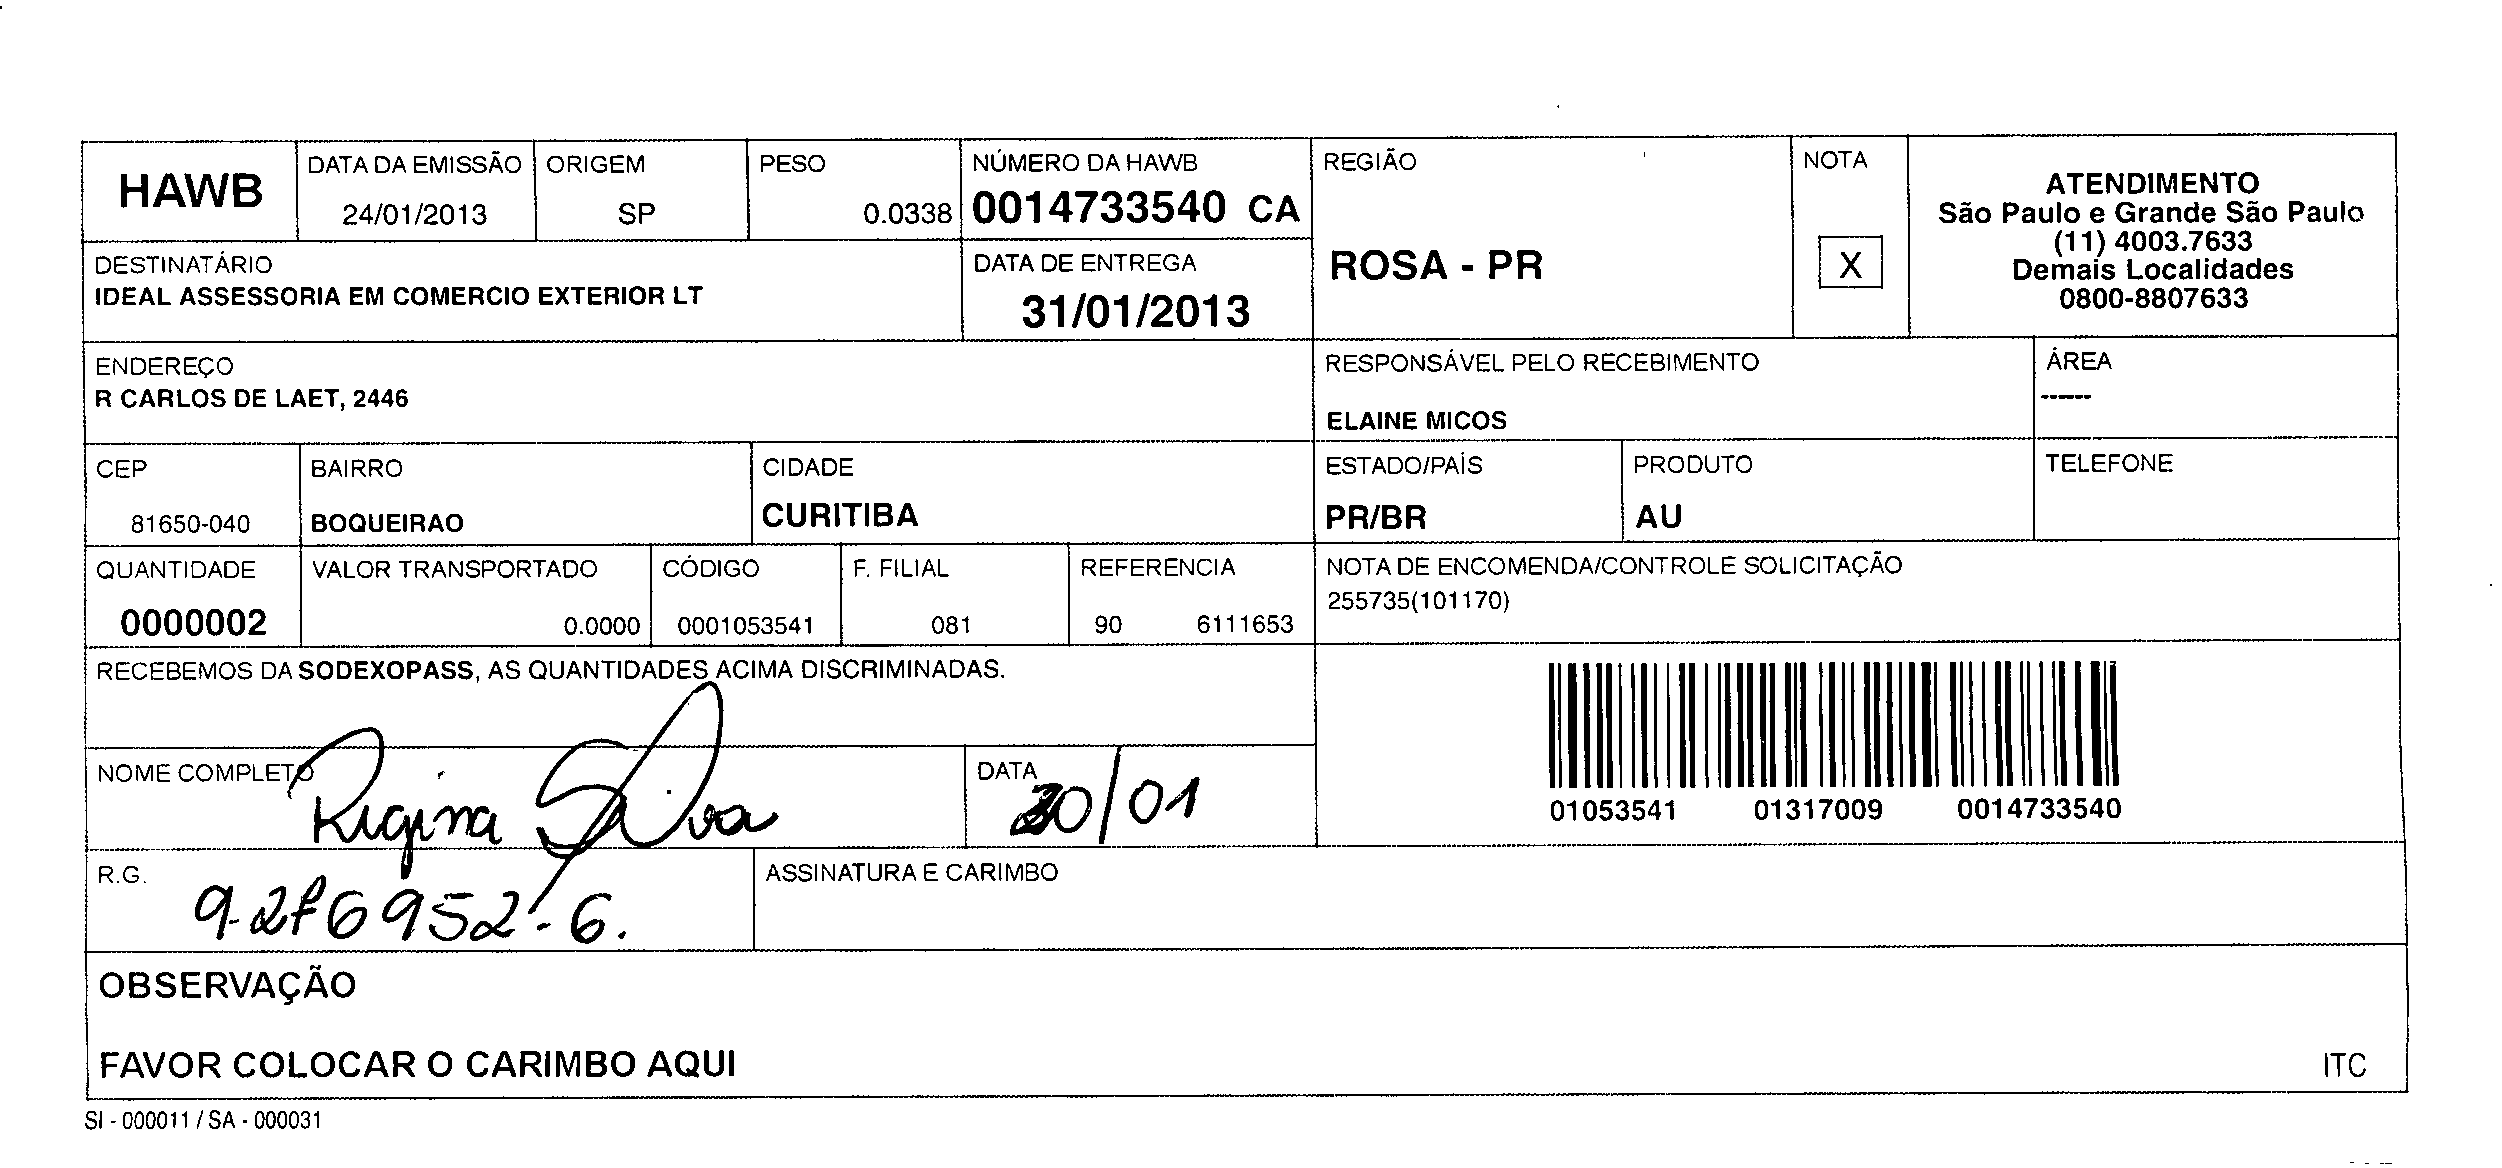 HAWB
DATA DA EMISSÃO
24/01/2013
ORIGEM
SP
PESO
0.0338
NÚMERO DA HAWB
0014733540 CA
REGIÃO
ROSA - PR
NOTA
X
ATENDIMENTO
São Paulo e Grande São Paulo
(11) 4003.7633
Demais Localidades
0800-8807633
DESTINATÁRIO
IDEAL ASSESSORIA EM COMERCIO EXTERIOR LT
DATA DE ENTREGA
31/01/2013
ENDEREÇO
R CARLOS DE LAET, 2446
RESPONSÁVEL PELO RECEBIMENTO
ELAINE MICOS
ÁREA
------
CEP
81650-040
BAIRRO
BOQUEIRAO
CIDADE
CURITIBA
ESTADO/PAÍS
PR/BR
PRODUTO
AU
TELEFONE
QUANTIDADE
0000002
VALOR TRANSPORTADO
0.0000
CÓDIGO
0001053541
F. FILIAL
081
REFERENCIA
90 6111653
NOTA DE ENCOMENDA/CONTROLE SOLICITAÇÃO
255735(101170)
RECEBEMOS DA SODEXOPASS, AS QUANTIDADES ACIMA DISCRIMINADAS.
01053541 01317009 0014733540
NOME COMPLETO
Regina Silva
DATA
30/01
R.G.
9.276952-6.
ASSINATURA E CARIMBO
OBSERVAÇÃO
FAVOR COLOCAR O CARIMBO AQUI
ITC
SI - 000011 / SA - 000031